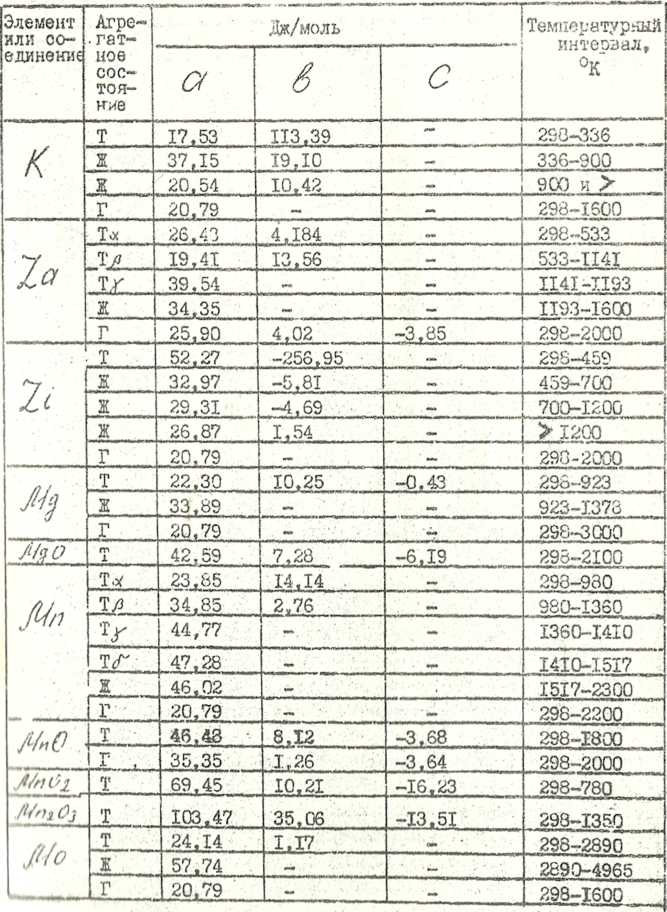 Элемент или соединение | Агре-гат-ное сос-тоя-ние | Дж/моль | Температурный интервал, °К
a | в | c
K | Т | 17,53 | 113,39 | – | 298-336
Ж | 37,15 | 19,10 | – | 336-900
Ж | 20,54 | 10,42 | – | 900 и >
Г | 20,79 | – | – | 298-1600
Za | Тα | 26,43 | 4,184 | – | 298-533
Тβ | 19,41 | 13,56 | – | 533-1141
Тγ | 39,54 | – | – | 1141-1193
Ж | 34,35 | – | – | 1193-1600
Г | 25,90 | 4,02 | -3,85 | 298-2000
Zi | Т | 52,27 | -256,95 | – | 298-459
Ж | 32,97 | -5,81 | – | 459-700
Ж | 29,31 | -4,69 | – | 700-1200
Ж | 26,87 | 1,54 | – | > 1200
Г | 20,79 | – | – | 298-2000
Mg | Т | 22,30 | 10,25 | -0,43 | 298-923
Ж | 33,89 | – | – | 923-1378
Г | 20,79 | – | – | 298-3000
MgO | Т | 42,59 | 7,28 | -6,19 | 298-2100
Mn | Тα | 23,85 | 14,14 | – | 298-980
Тβ | 34,85 | 2,76 | – | 980-1360
Тγ | 44,77 | – | – | 1360-1410
Тδ | 47,28 | – | – | 1410-1517
Ж | 46,02 | – | – | 1517-2300
Г | 20,79 | – | – | 298-2200
MnO | Т | 46,48 | 8,12 | -3,68 | 298-1800
Г | 35,35 | 1,26 | -3,64 | 298-2000
MnO2 | Т | 69,45 | 10,21 | -16,23 | 298-780
Mn2O3 | Т | 103,47 | 35,06 | -13,51 | 298-1350
Mo | Т | 24,14 | 1,17 | – | 298-2890
Ж | 57,74 | – | – | 2890-4965
Г | 20,79 | – | – | 298-1600